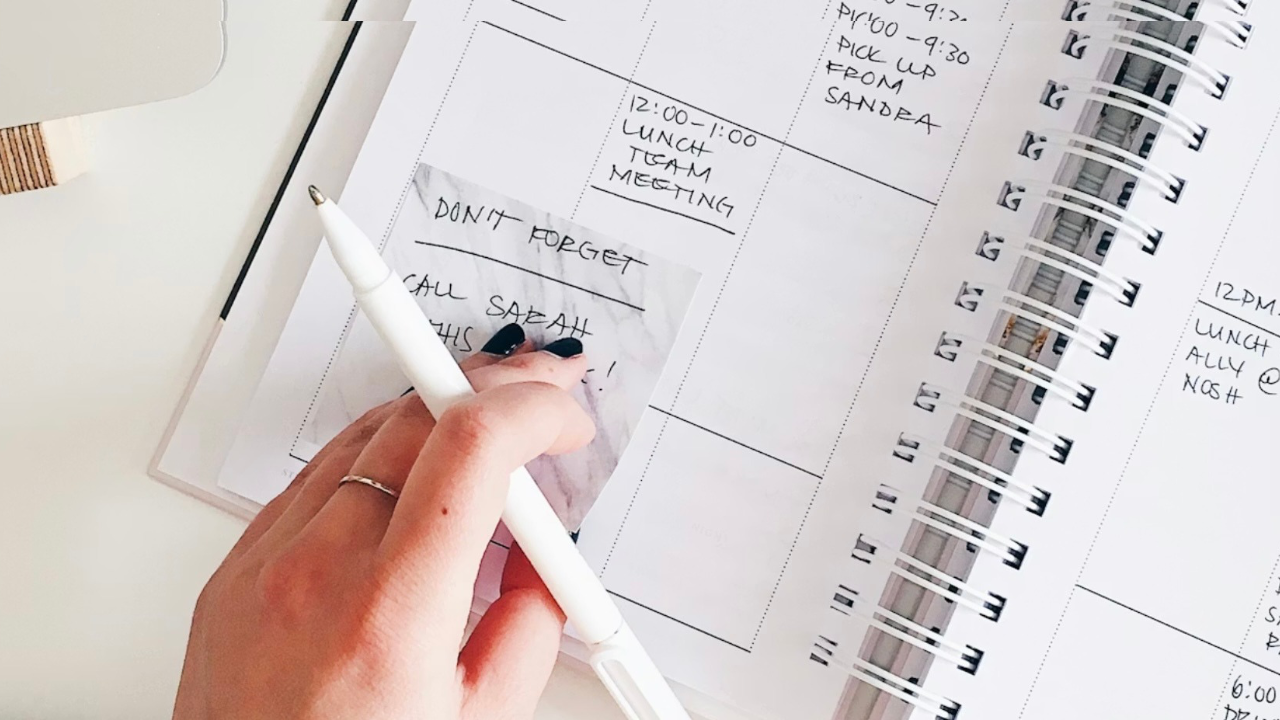 9:00 -9:30
PICK UP
FROM
SANDRA
12:00-1:00
LUNCH
TEAM
MEETING
DON'T FORGET
CALL SARAH
THIS
!
12PM
LUNCH
ALLY @
NOSH
6:00